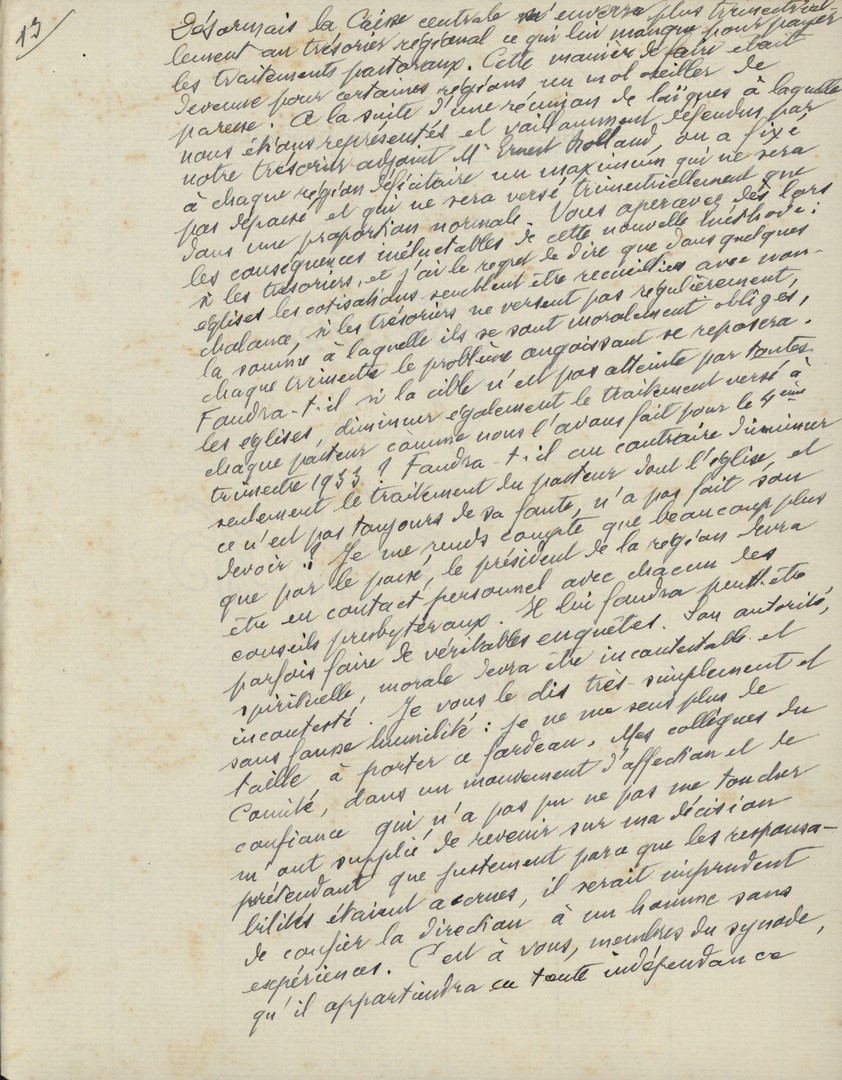 13/
Désormais la Caisse centrale n'enverra plus trimestriel-
lement au trésorier régional ce qui lui manque pour payer
les traitements pastoraux. Cette manière de faire était
devenue pour certaines régions un mol oreiller de
paresse. A la suite d'une réunion de laïques à laquelle
nous étions représentés et vaillamment défendus par
notre trésorier-adjoint Mr Ernest Rolland, on a fixé
à chaque région déficitaire un maximum qui ne sera
pas dépassé et qui ne sera versé trimestriellement que
dans une proportion normale. Vous apercevez dès lors
les conséquences inéluctables de cette nouvelle méthode :
si les trésoriers, et j'ai le regret de dire que dans quelques
églises les cotisations semblent être recueillies avec non-
chalance, si les trésoriers ne versent pas régulièrement,
la somme à laquelle ils se sont moralement obligés,
chaque trimestre le problème angoissant se reposera.
Faudra-t-il si la cible n'est pas atteinte par toutes
les églises, diminuer également le traitement versé à
chaque pasteur comme nous l'avons fait pour le 4ème
trimestre 1933 ? Faudra-t-il au contraire diminuer
seulement le traitement du pasteur dont l'église, et
ce n'est pas toujours de sa faute, n'a pas fait son
devoir ? Je me rends compte que beaucoup plus
que par le passé, le président de la région devra
être en contact personnel avec chacun des
conseils presbytéraux. Il lui faudra peut-être
parfois faire de véritables enquêtes. Son autorité,
spirituelle, morale devra être incontestable et
incontesté. Je vous le dis très simplement et
sans fausse humilité : je ne me sens plus de
taille à porter ce fardeau. Mes collègues du
Comité, dans un mouvement d'affection et de
confiance qui n'a pas pu ne pas me toucher
m'ont supplié de revenir sur ma décision
prétendant que justement parce que les responsa-
bilités étaient accrues, il serait imprudent
de confier la direction à un homme sans
expériences. C'est à vous, membres du synode,
qu'il appartiendra en toute indépendance